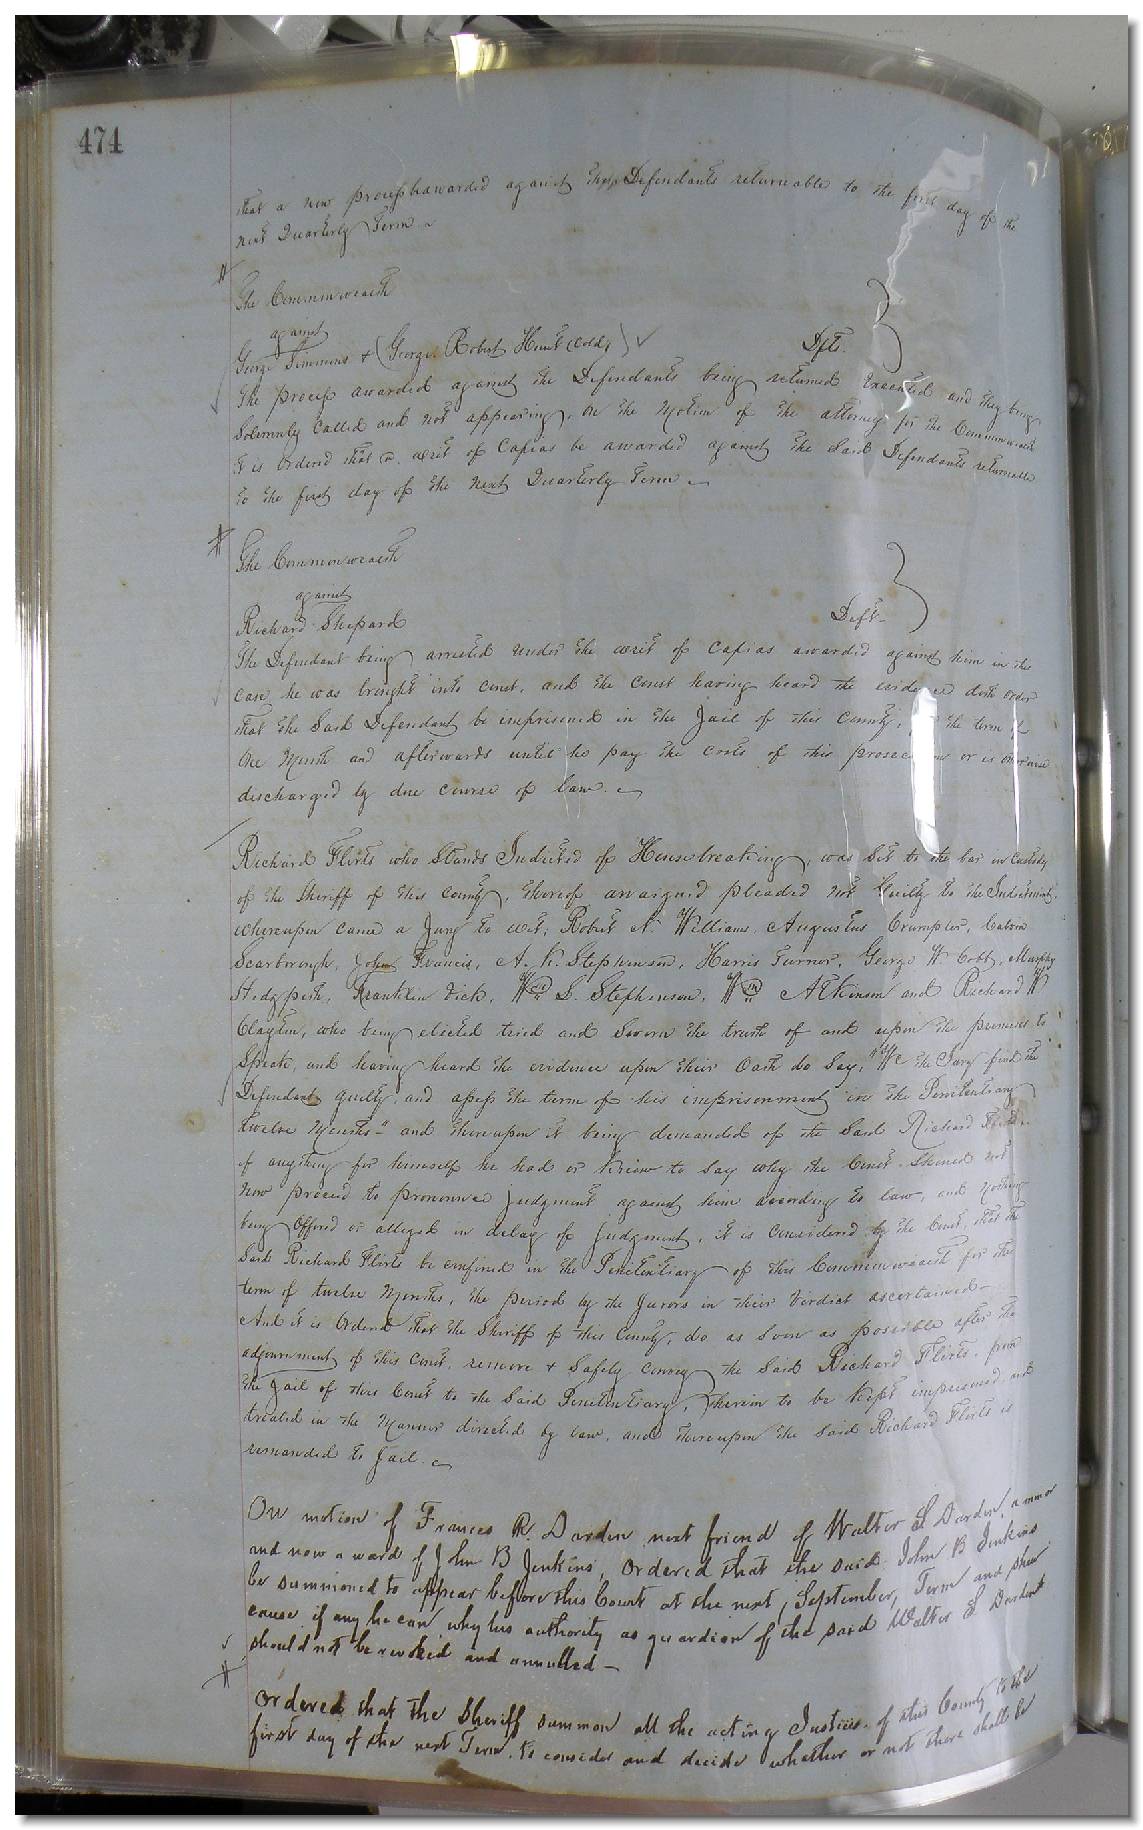 474
that a new process awarded against the Defendants returnable to the first day of the
next Quarterly Term
The Commonwealth
against
George Simmons & (George Robert Hunt (cold) ) Dfts.
The process awarded against the Defendants being returned executed and they being
Solemnly Called and not appearing, on the Motion of the attorney for the Commonwealth
it is ordered that a writ of Capias be awarded against the Said Defendants returnable
to the first day of the next Quarterly Term
The Commonwealth
against
Richard Shepard Deft-
The Defendant being arrested under the writ of Capias awarded against him in this
case he was brought into court, and the court having heard the evidence doth order
that the Said Defendant be imprisoned in the Jail of this County, the term of
One Month and afterwards until he pay the costs of this prosecution or is otherwise
discharged by due course of law.
Richard Flirts who Stands Indicted of Housebreaking, was Set to the bar in Custody
of the Sheriff of this County, thereof arraigned pleaded not Guilty to the Indictment,
whereupon came a Jury to wit; Robert N. Williams, Augustus Crumpler, Calvin
Scarbrough, John Francis, A. K. Stephenson, Harris Turner, George W. Cobb, Murphy
Hedgpeth, Franklin Vick, Wm S. Stephenson, Wm Atkinson and Richard W
Clayton, who being elected tried and Sworn the truth of and upon the premises to
Speak, and having heard the evidence upon their Oath do Say, "We the Jury find the
Defendant guilty, and assess the term of his imprisonment in the Penitentiary
twelve Months" and thereupon it being demanded of the Said Richard Flirts
if anything for himself he had or Knew to Say why the Court Should not
now proceed to pronounce Judgment against him according to law, and nothing
being Offered or alleged in delay of Judgment, it is Considered by the Court, that the
Said Richard Flirts be confined in the Penitentiary of this Commonwealth for the
term of twelve Months, the period by the Jurors in their Verdict ascertained-
And it is Ordered that the Sheriff of this County, do as Soon as possible after the
adjournment of this court, remove & Safely convey the Said Richard Flirts, from
the Jail of this Court to the Said Penitentiary, therein to be Kept imprisoned and
treated in the Manner directed by law, and thereupon the Said Richard Flirts is
remanded to Jail.
On motion of Frances R. Darden next friend of Walter S Darden, a minor
and now a ward of John B Jenkins, Ordered that the said John B Jenkins
be summoned to appear before this Court at the next, September, Term and shew
cause if any he can why his authority as guardian of the said Walter S Darden
should not be revoked and annulled –
Ordered that the Sheriff summon all the acting Justices of this County to the
first day of the next Term, to consider and decide whether or not there shall be